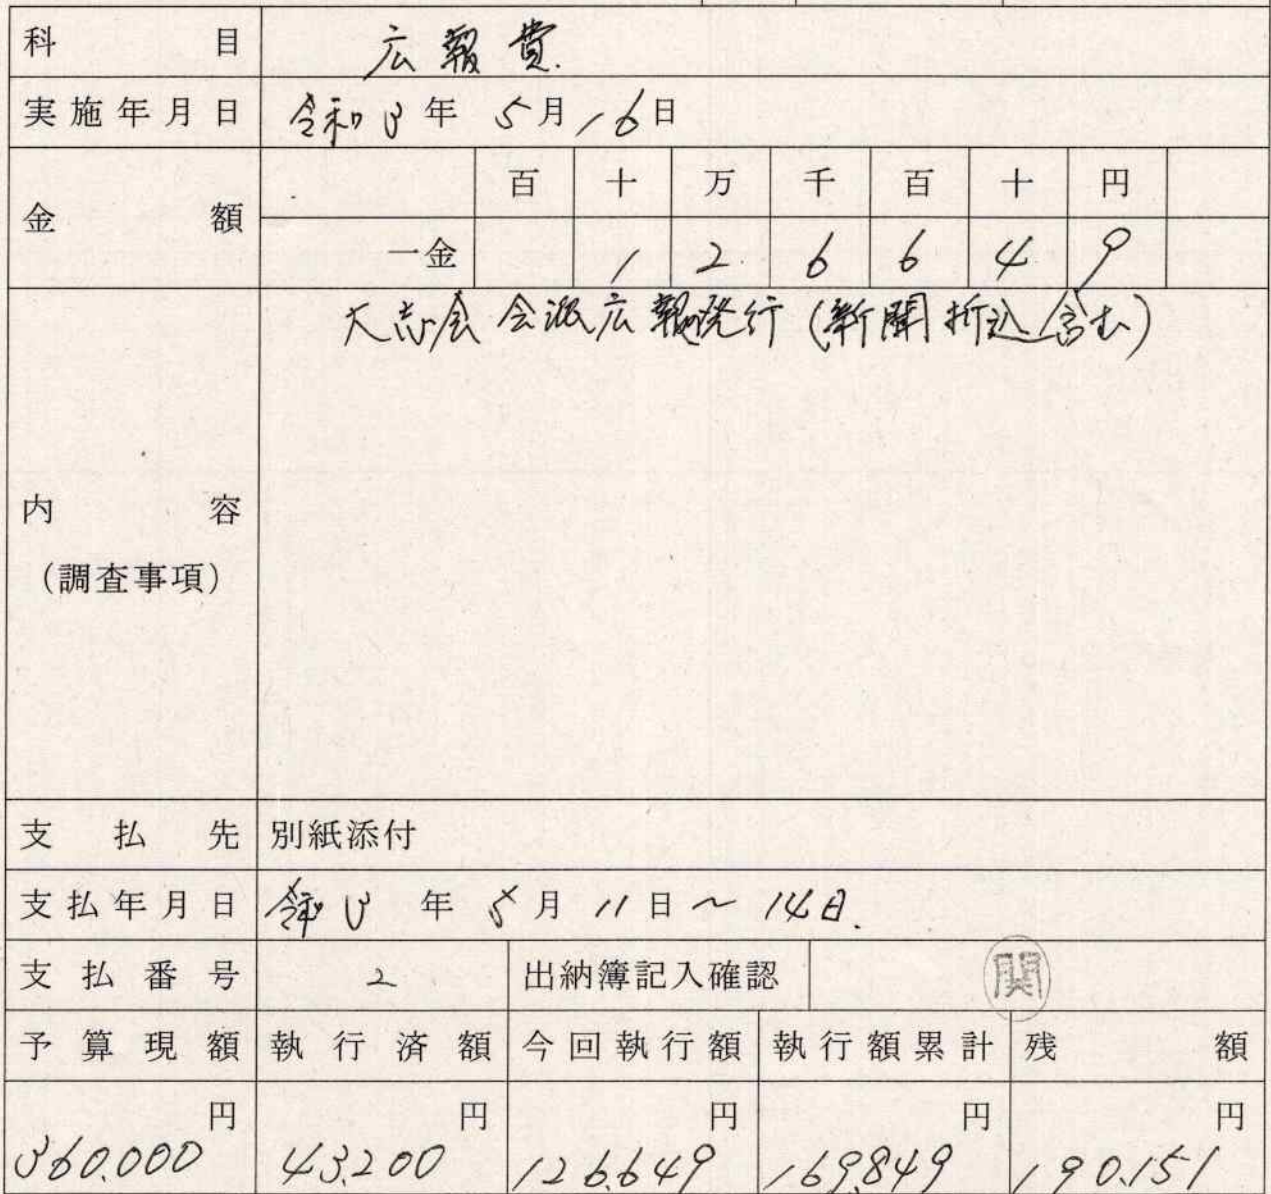 科目 広報費.
実施年月日 令和3年 5月16日
金額 百 十 万 千 百 十 円
一金 1 2 6 6 4 9
大志会 会派広報発行(新聞折込含む)
内容
(調査事項)
支払先 別紙添付
支払年月日 令和3年 5月11日~14日.
支払番号 2 出納簿記入確認 関
予算現額 執行済額 今回執行額 執行額累計 残額
円 円 円 円 円
360.000 43.200 126.649 169.849 190.151